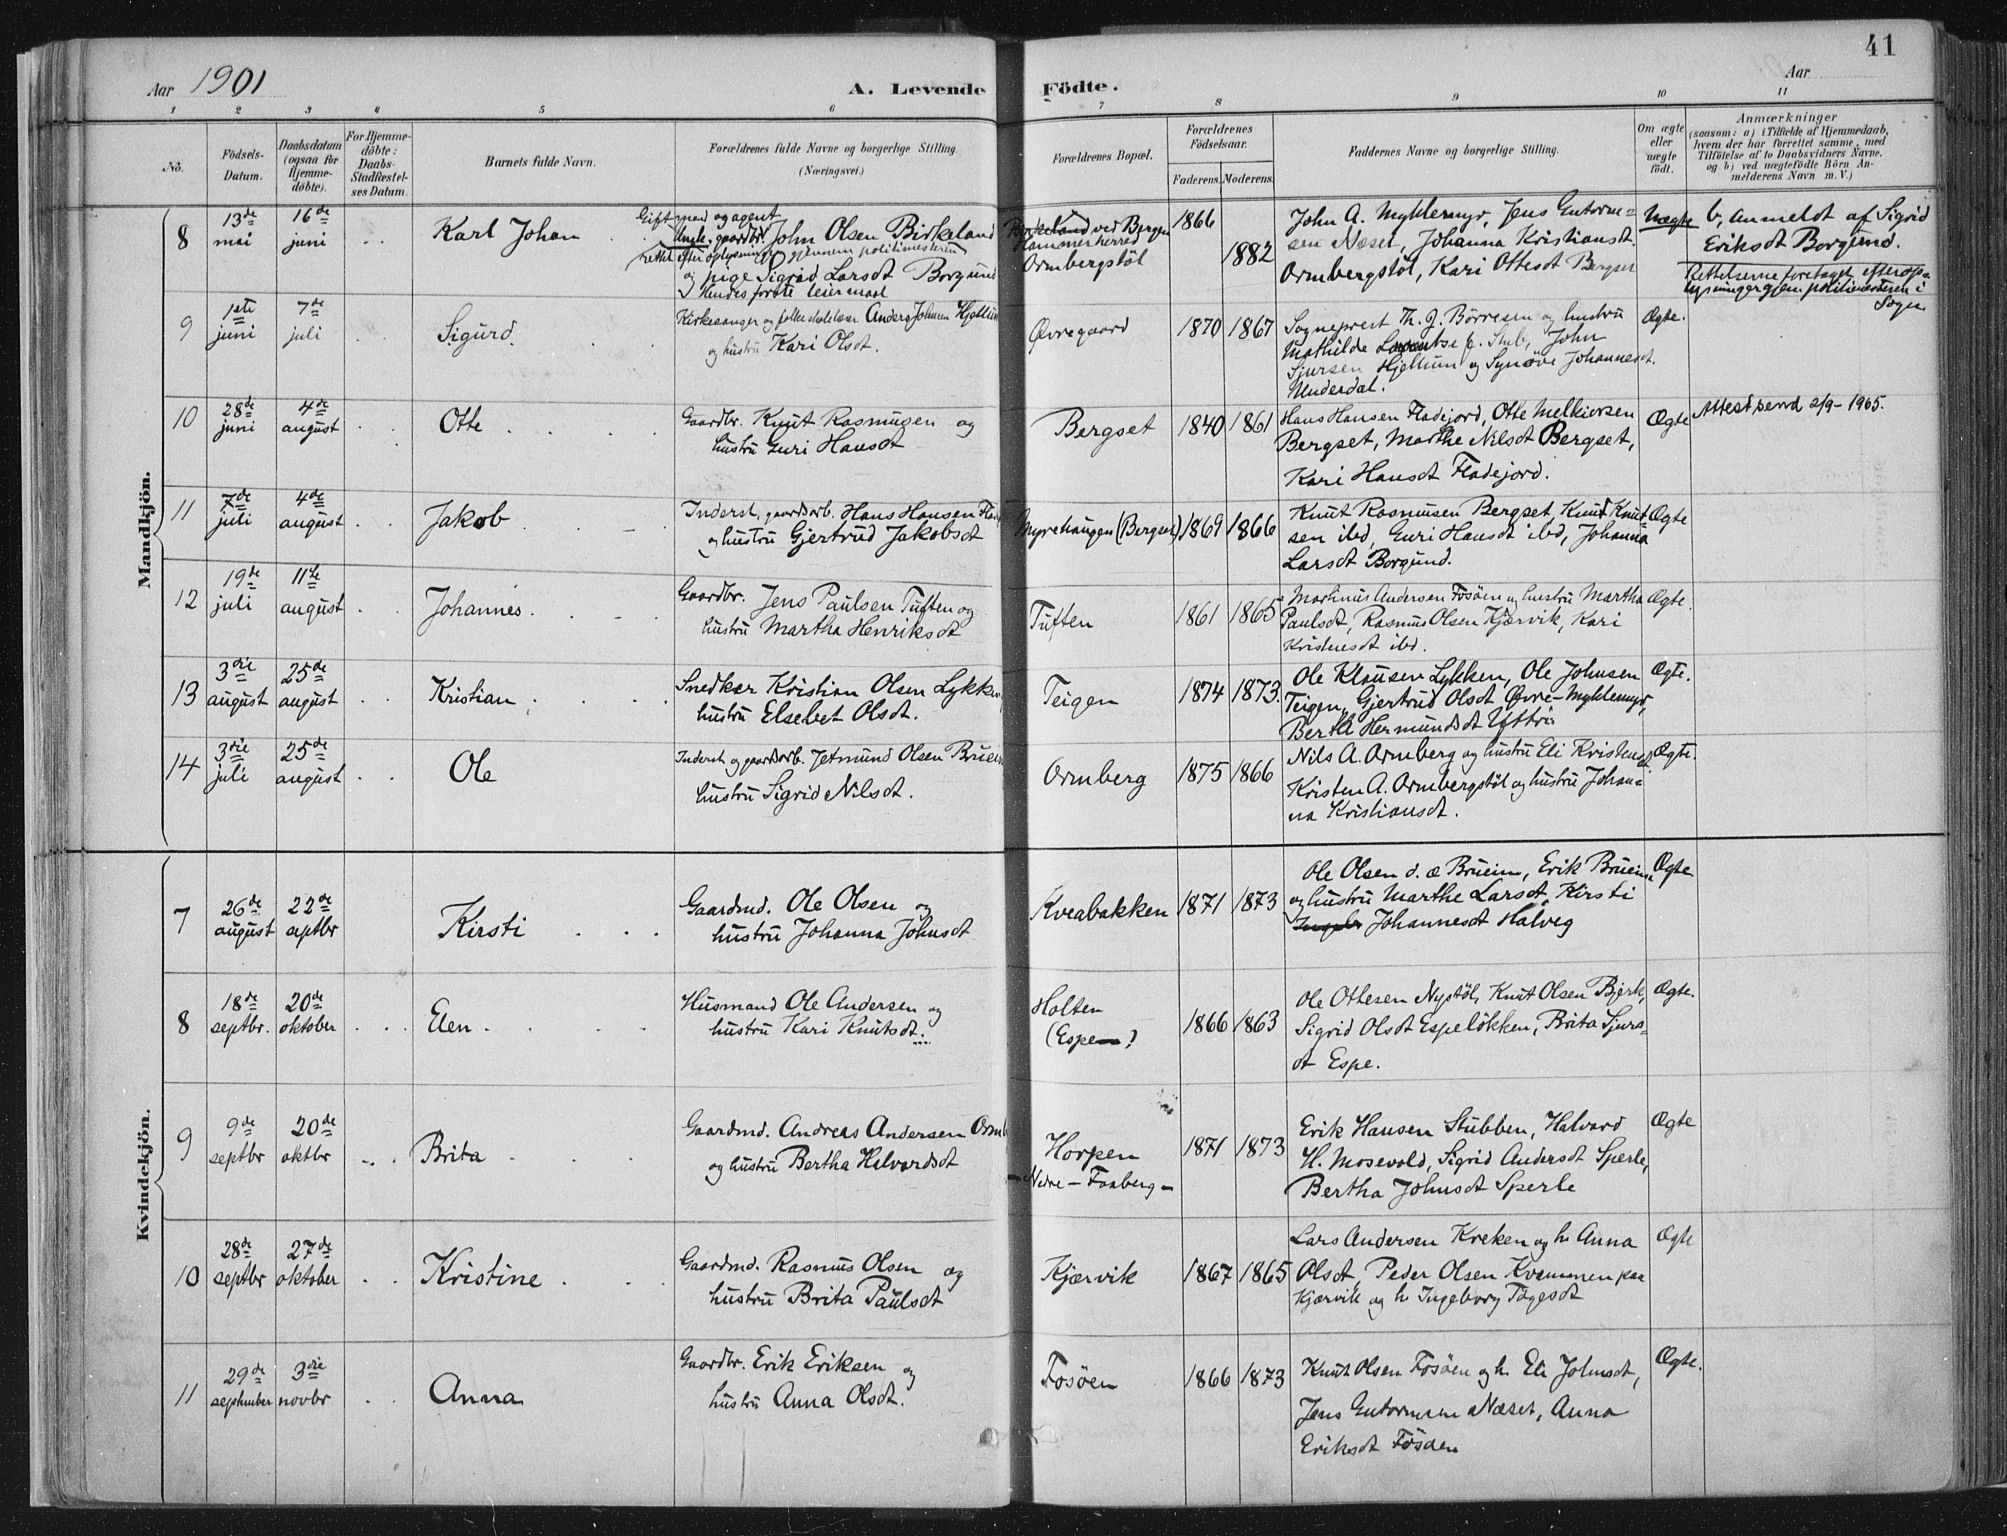 41
Aar 1901
A. Levende Födte.
Aar
1 2 3 4 5 6 7 8 9 10 11
No.
Födsels-
Datum.
Daabsdatum
(ogsaa for
Hjemme-
döbte).
For Hjemme-
döbte:
Daabs-
Stadfæstel-
ses Datum.
Barnets fulde Navn.
Forældrenes fulde Navne og borgerlige Stilling.
(Næringsvei.)
Forældrenes Bopæl.
Forældrenes
Födselsaar.
Faderens. Moderens.
Faddernes Navne og borgerlige Stilling.
Om ægte
eller
uægte
födt.
Anmærkninger
(saasom: a) i Tilfælde af Hjemmedaab,
hvem der har forrettet samme, med
Tilföielse af to Daabsvidners Navne.
og b) ved uægtefödte Börn An-
melderens Navn m. V.)
Mandkjön.
8
13de
mai
16de
juni
Karl Johan
Gift mand og agent
Ungk. gaardbr. John Olsen Birkeland
rettet efter oplysninger gjennem politimesteren
og pige Sigrid Larsdt Borgund
Hendes første leiermaal
Birkeland ved Bergen
Hammer herred
Ormbergstøl
1866
1882
John A. Myklemyr, Jens Guttorm=
sen Næset, Johanna Kristiansdt.
Ormbergstøl, Kari Ottesdt Bergset
Uægte
b, anmeldt af Sigrid
Eriksdt Borgund.
Rettelserne foretaget efter op=
lysninger gjen. politimesteren i
Sogn
9
1ste
juni
7de
juli
Sigurd
Kirkesanger og folkeskolelærer Anders Johnsen Hjellum
og hustru Kari Olsdt.
Øvregaard
1870 1867
Sogneprest Th. J. Børresen og hustru
Mathilde f. Stub, John
Sjursen Hjellum og Synøve Johannesdt.
Underdal.
Ægte.
10
28de
juni
4de
august
Otte
Gaardbr. Knut Rasmusen og
hustru Guri Hansdt
Bergset
1840 1861
Hans Hansen Fladejord, Otte Melkiorsen
Bergset, Marthe Nilsdt Bergset,
Kari Hansdt Fladejord.
Ægte
Attest send 2/9-1905.
11
7de
juli
4de
august
Jakob
Inderst, gaardarb. Hans Hansen
og hustru Gjertrud Jakobsdt
Myrehaugen (Bergset)
1869 1866
Knut Rasmusen Bergset, Knut Knut-
sen ibd, Guri Hansdt ibd, Johanna
Larsdt Borgund.
Ægte
12
19de
juli
11te
august
Johannes
Gaardbr. Jens Paulsen Tuften og
hustru Martha Henriksdt
Tuften
1861 1865
Martinus Andersen Fosøen og hustru Martha
Paulsdt, Rasmus Olsen Kjærvik, Kari
Kristensdt ibd.
Ægte.
13
3die
august
25de
august
Kristian
Snedker Kristian Olsen Lykken
hustru Elsebet Olsdt.
Teigen
1874 1873.
Ole Klausen Lykken, Ole Johnsen
Teigen, Gjertrud Olsdt Øvre-Myklemyr,
Berthe Hermundsdt Yttri
Ægte.
14
3die
juli
25de
august
Ole
Inderst og gaardarb. Jetmund Olsen Brueim
hustru Sigrid Nilsdt.
Ormberg
1875 1866
Nils A. Ormberg og hustru Eli Kristensdt.
Kristen A. Ormbergstøl og hustru Johan=
na Kristiansdt.
Ægte.
Kvindekjön.
7
26de
august
22de
septbr
Kirsti
Gaardmd. Ole Olsen og
hustru Johanna Johnsdt
Kveabakken
1871 1873
Ole Olsen d. æ Brueim, Erik Brueim
og hustru Marthe Larsdt, Kirsti
Johannesdt Halveg
Ægte
8
18de
septbr.
20de
oktober
Elen
Husmand Ole Andersen og
hustru Kari Knutsdt
Holten
(Espe)
1866 1863
Ole Ottesen Nystøl, Knut Olsen Bjerk,
Sigrid Olsdt Espeløkken, Brita Sjurs-
dt Espe.
Ægte.
9
9de
septbr
20de
oktbr
Brita
Gaardmd. Andreas Andersen
og hustru Bertha Halvardsdt
Horpen
Nedre-Faaberg-
1871 1873
Erik Hansen Stubben, Halvard
H. Mosevold, Sigrid Andersdt Sperle,
Bertha Johnsdt Sperle
Ægte
10
28de
septbr
27de
oktober
Kristine
Gaardmd. Rasmus Olsen og
hustru Brita Paulsdt
Kjærvik
1867 1865
Lars Andersen Kreken og h. Anna
Olsdt, Peder Olsen Kvammen paa
Kjærvik og h. Ingeborg Tøgesdt
Ægte
11
29de
september
3die
novbr
Anna
Gaardbr. Erik Eriksen og
hustru Anna Olsdt.
Fosøen
1866 1873
Knut Olsen Fosøen og h. Eli Johnsdt,
Jens Guttormsen Næset, Anna
Eriksdt Fosøen
Ægte.